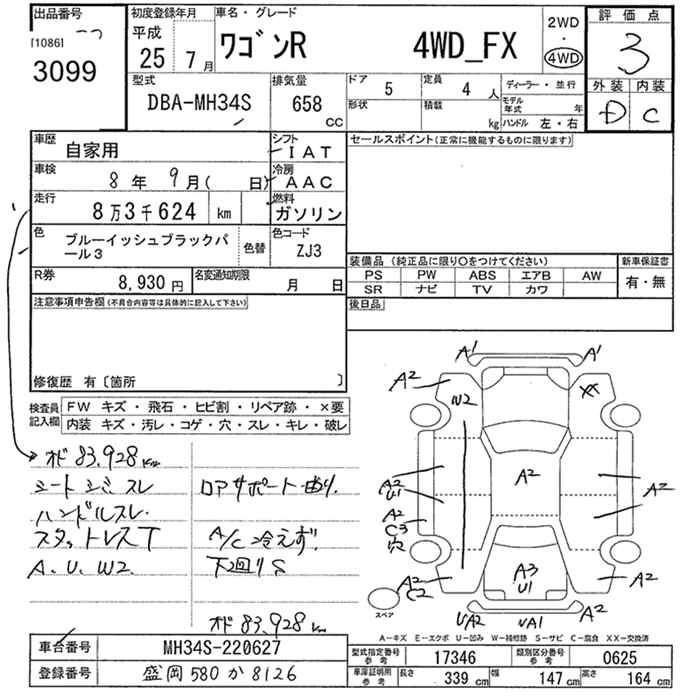 出品番号
[1086]
3099
初度登録年月
平成
25年 7月
車名・グレード
ワゴンR 4WD_FX
2WD
・
4WD
評価点
3
外装 内装
D C
型式
DBA-MH34S
排気量
658
CC
ドア 5
形状
定員 4 人
積載 kg
ディーラー・並行
モデル年式 年
ハンドル 左・右
車歴
自家用
シフト
IAT
車検
8年 9月( 日)
冷房
AAC
走行
8万3千624 km
燃料
ガソリン
色
ブルーイッシュブラックパール3
色替
色コード
ZJ3
R券
8,930円
名変通知期限
月 日
注意事項申告欄(不具合内容等は具体的に記入して下さい)
修復歴 有〔箇所 〕
セールスポイント(正常に機能するものに限ります)
装備品 (純正品に限り○をつけてください)
PS PW ABS エアB AW
SR ナビ TV カワ
新車保証書
有・無
後日品
検査員記入欄
FW キズ・飛石・ヒビ割・リペア跡・×要
内装 キズ・汚レ・コゲ・穴・スレ・キレ・破レ
オド 83,928km
シートシミ スレ
ハンドルスレ
スタットレスT
A、U、W2
ロアサポート曲り.
A/C冷えず.
下回りS
オド 83,928km
A1 A1
A2 XX
W2
A2
U1
A2
C3
穴
A2
A2
A2
C2
A3
U1
A2
UA2 UA1 A2
スペア
A-キズ E-エクボ U-凹み W-補修跡 S-サビ C-腐食 XX-交換済
車台番号
MH34S-220627
登録番号
盛岡 580 か 8126
型式指定番号
参考
17346
類別区分番号
参考
0625
車庫証明用
参考
長さ 339 cm
幅 147 cm
高さ 164 cm